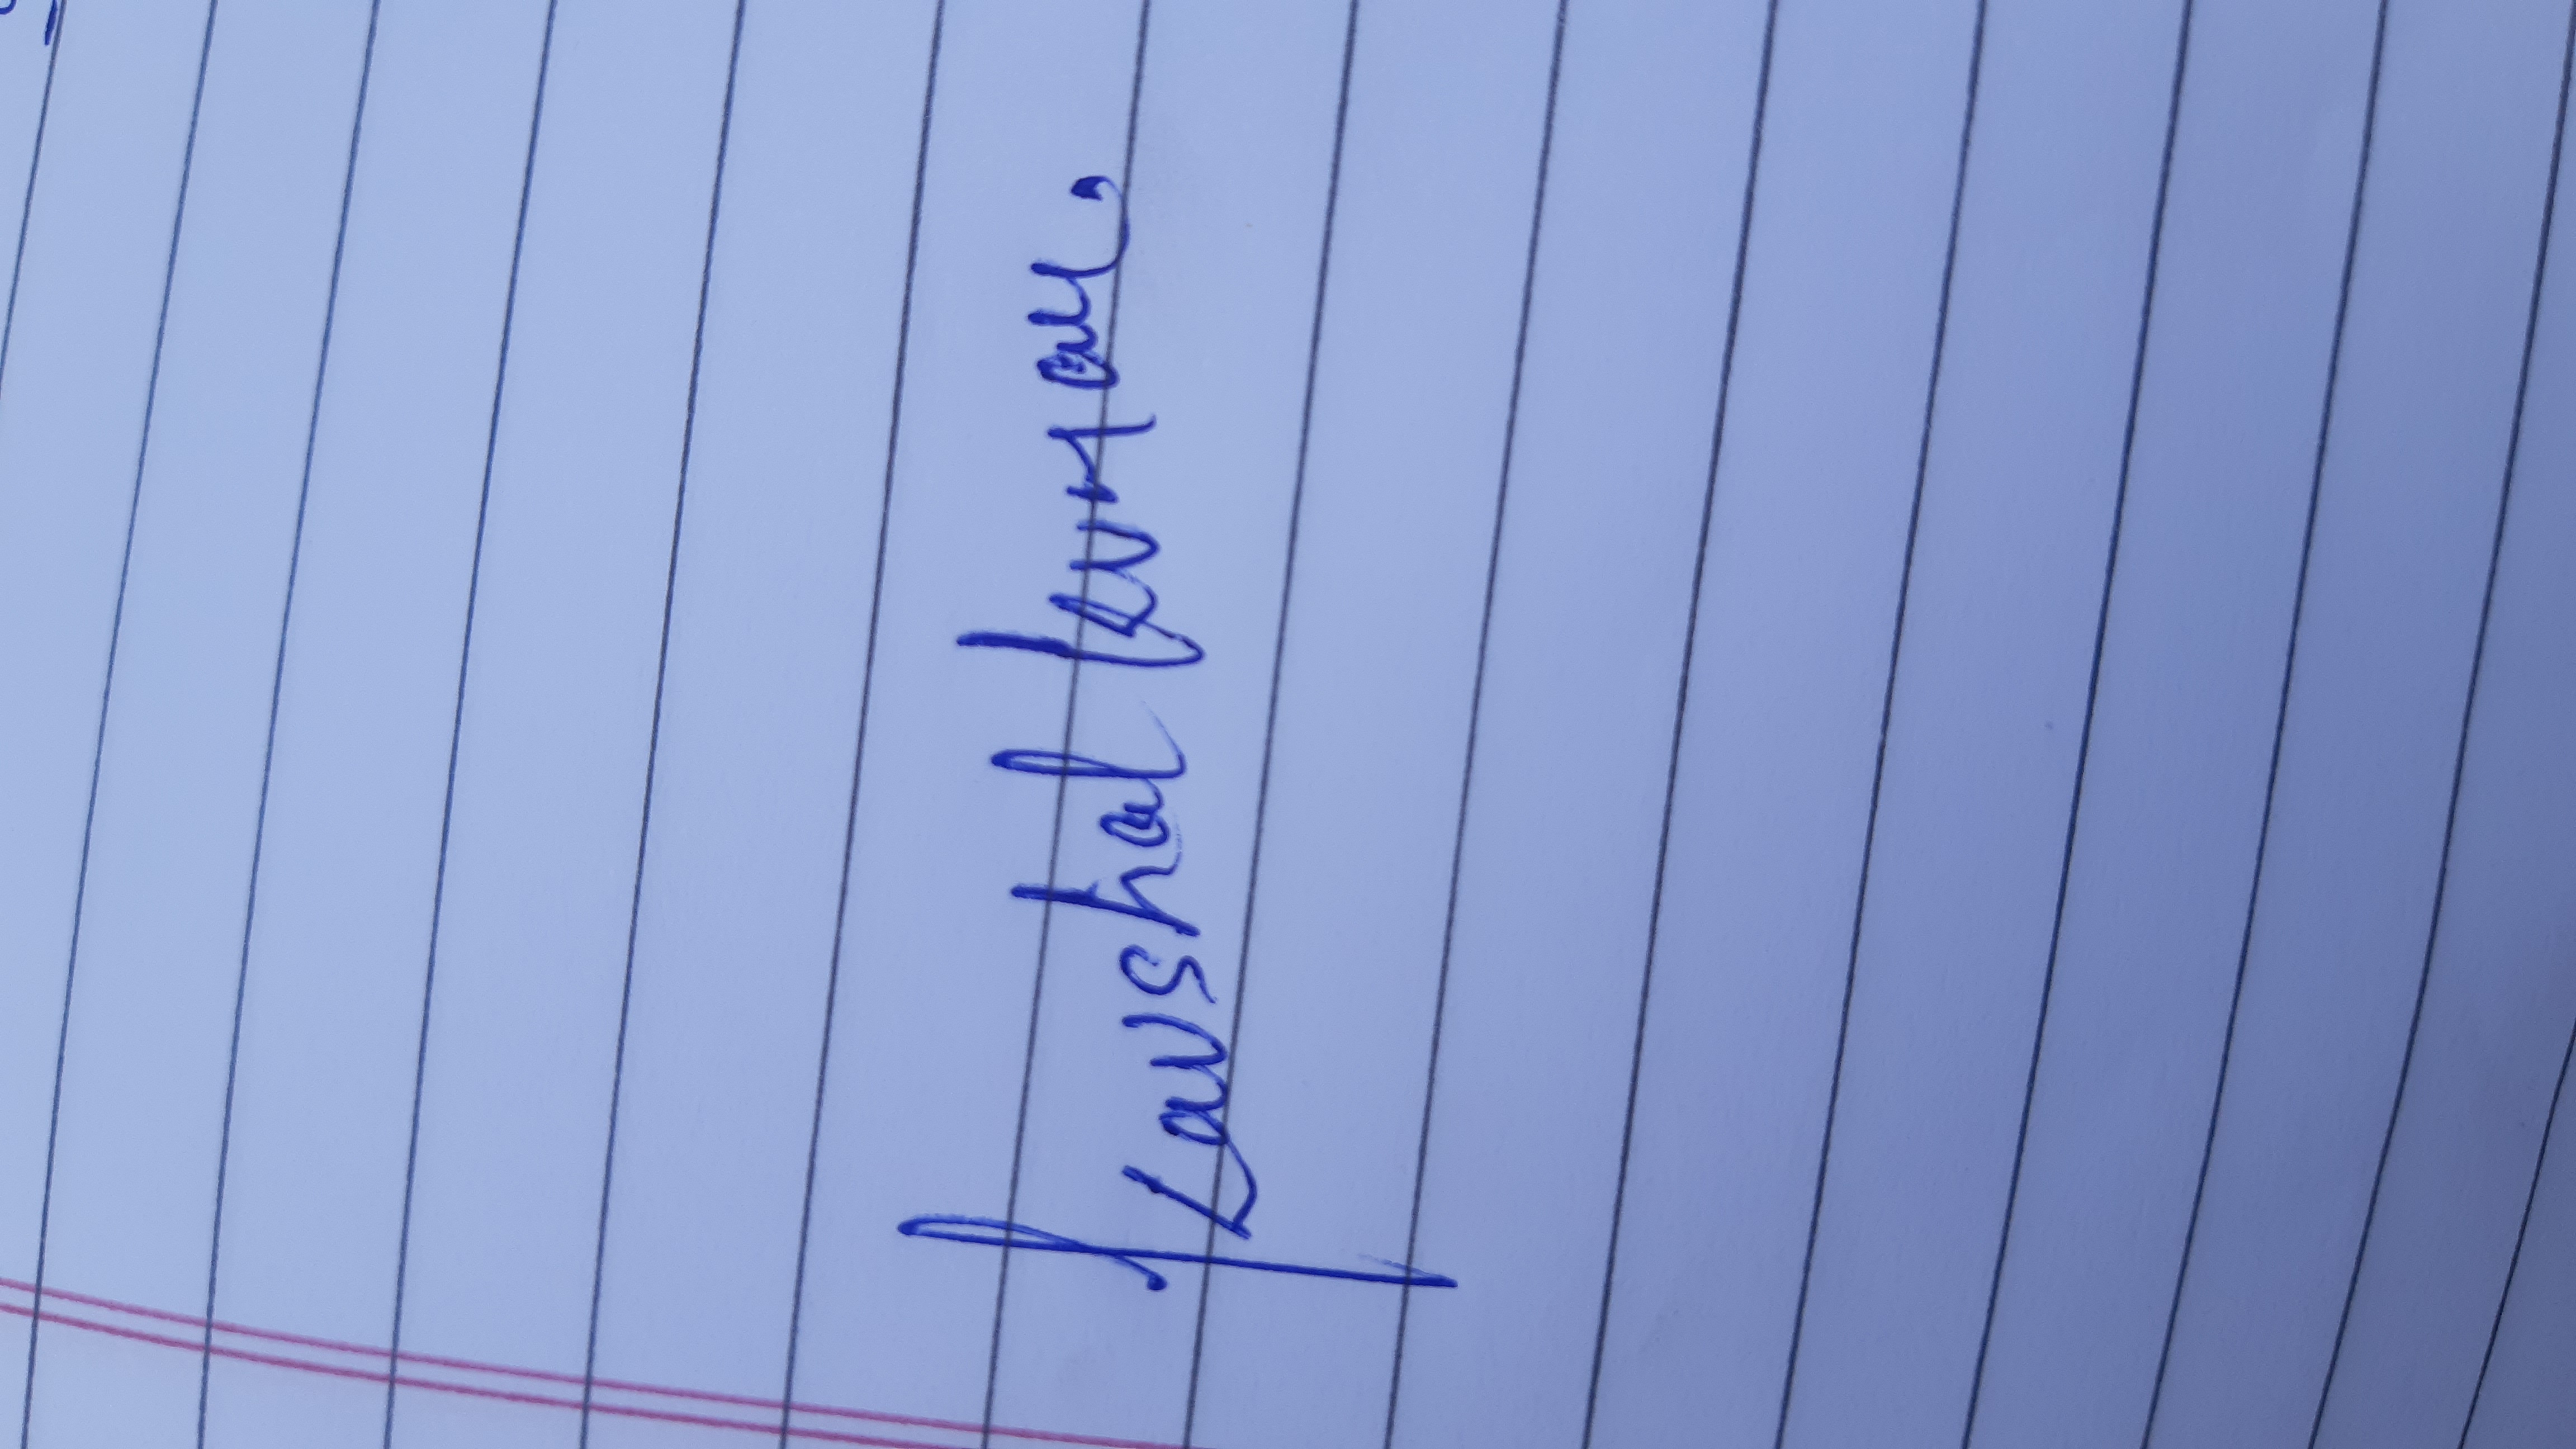 Kaushal Kumar.